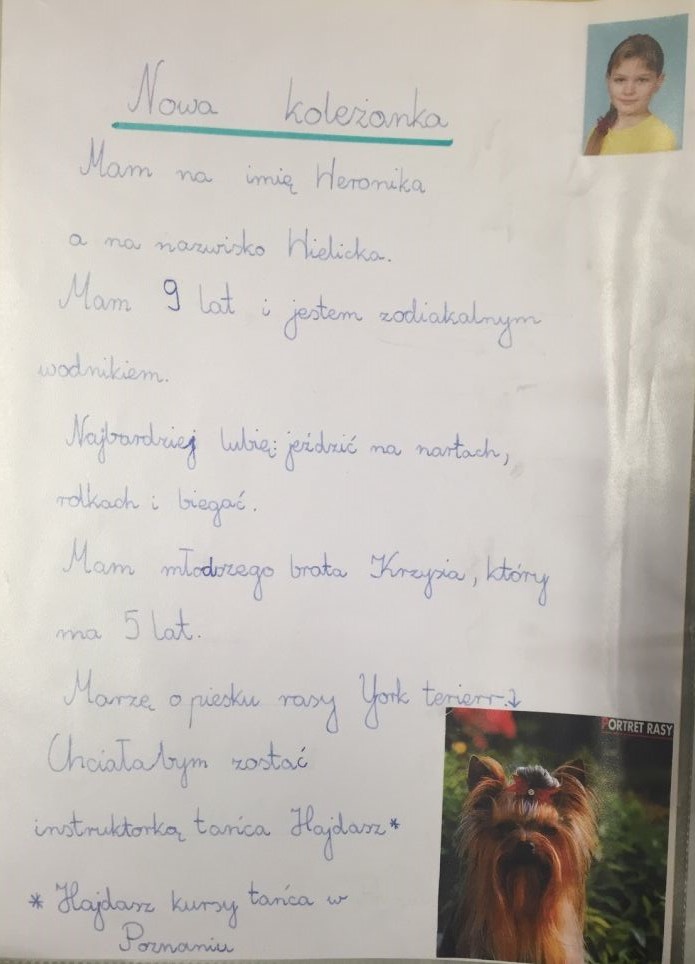 Nowa koleżanka
Mam na imię Weronika
a na nazwisko Wielicka.
Mam 9 lat i jestem zodiakalnym
wodnikiem.
Najbardziej lubię: jeździć na nartach,
rolkach i biegać.
Mam młodszego brata Krzysia, który
ma 5 lat.
Marzę o piesku rasy York terierr.↓
PORTRET RASY
Chciałabym zostać
instruktorką tańca Hajdasz*
* Hajdasz kursy tańca w
Poznaniu